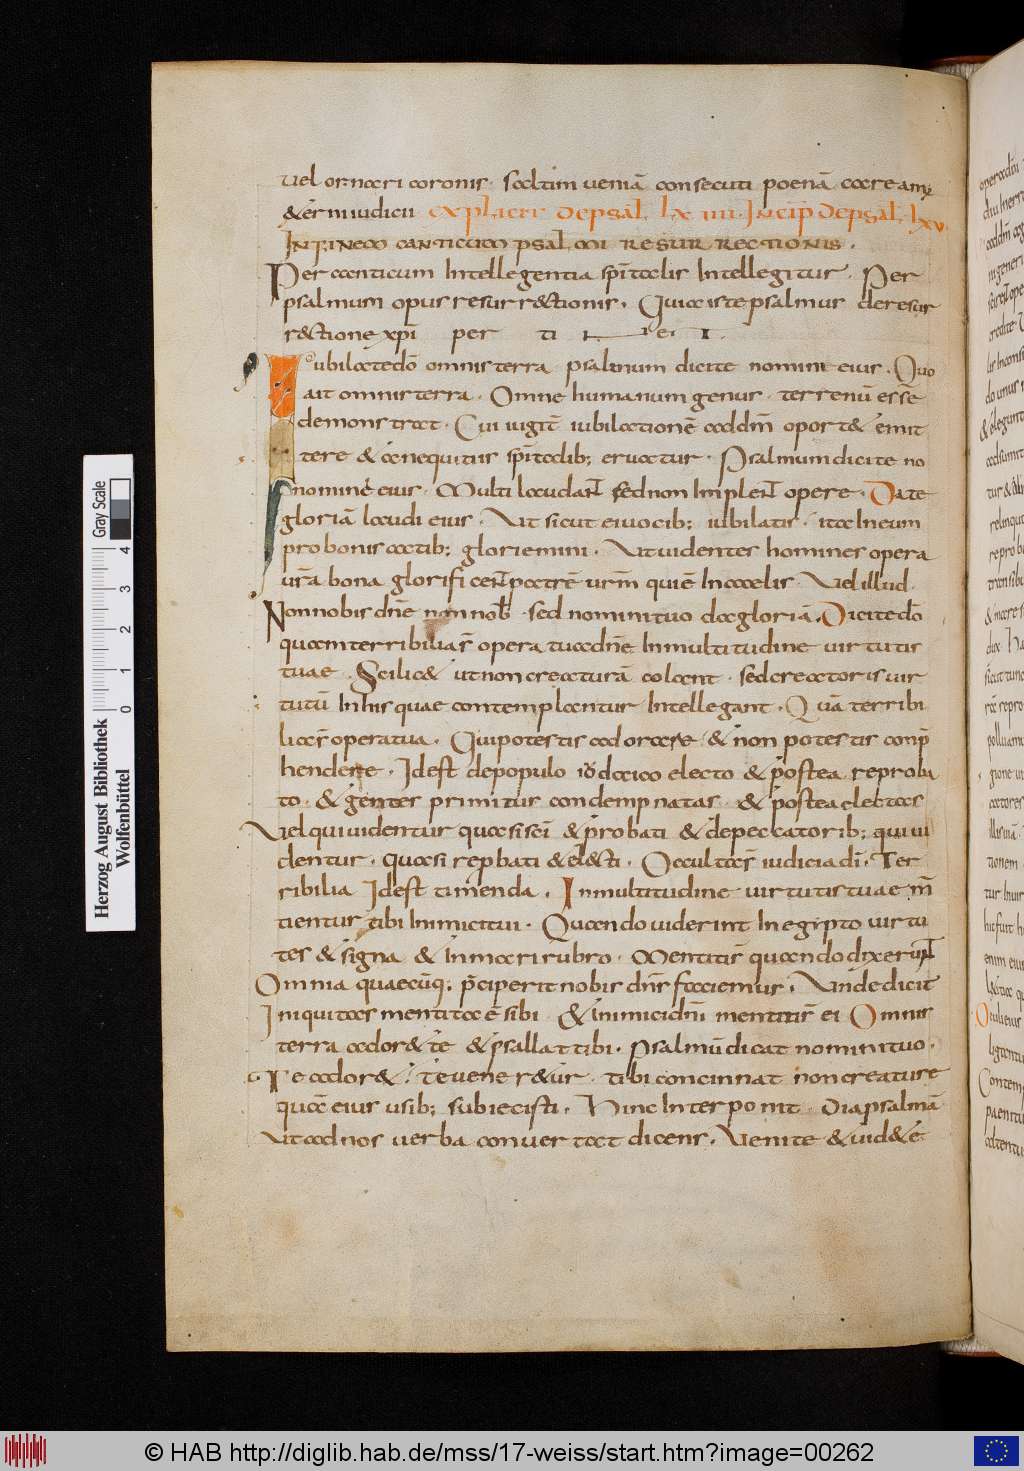 uel ornari coronis. Saltim ueniā consecuti poenā caream;
&erni iudicii explicit depsal lx iiii. Incip depsal lxv
IN FINEM CANTICUM psalmi RESURRECTIONIS.
Per canticum intellegentia spitalis intellegitur. Per
psalmum opus resurr&ionis. Quia iste psalmus deresur
r&ione xpi per ti n& e t.
Iubilatedō omnis terra psalmum dicite nomini eius. Quo
ait omnis terra. Omne humanum genus. terrenū esse
demonstrat. Cui iugit iubilationē addm̄ oport& emit
tere & anequitiis spitalib; eruatur. Psalmum dicite no
nomine eius. Multi laudant sed non implent opere. Date
gloriā laudi eius. Ut sicut eiuocib; iubilatis. ita in eum
pro bonis actib; gloriemini. Ut uidentes homines opera
urā bona glorificent patrē urm̄ quiē incaelis. Uel illud.
Non nobis dn̄e non nob sed nomini tuo da gloriā. Dicite dō
quam terribilia s̄ opera tua dn̄e In multitudine uirtutis
tuae. Scilic& ut non creaturā colant. sed creatoris uir
tutū In his quae contemplantur Intellegant. Quā terribi
lia s̄ opera tua. Qui potestis adorare & non potestis conp̄
hendere. Idest depopulo iudaico electo & postea reproba
to. & gentes primitus condempnatas & postea electas
Uel qui uidentur quasi sc̄i & p̄robati & depeccatorib; qui ui
dentur. quasi repbati & el&i. Occulta s̄ iudicia di. Ter
ribilia Idest timenda. Inmultitudine uirtutis tuae m̄
tientur tibi inimici tui. Quando uiderint In egipto uirtu
tes & signa & In mari rubro. Mentiti s̄ quando dixerunt
Omnia quaecūq; p̄ciperit nobis dn̄s faciemus. Unde dicit
Iniquitas mentita ē sibi & Inimici dn̄i mentiti s̄ ei Omnis
terra ador& te & psallat tibi. Psalmū dicat nomini tuo.
Te ador&. te uener&ur. tibi concinnat non creature
quā eius usib; subiecisti. Hinc Interponit. diapsalmā
Ut ad nos uerba conuertat dicens. Uenite & uid&e
Gray Scale
0 1 2 3 4
Herzog August Bibliothek
Wolfenbüttel
© HAB http://diglib.hab.de/mss/17-weiss/start.htm?image=00262